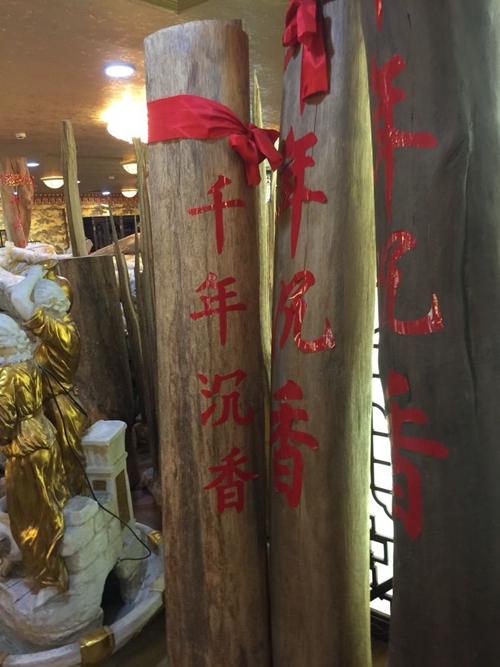 千年沉香
年沉香
年沉香